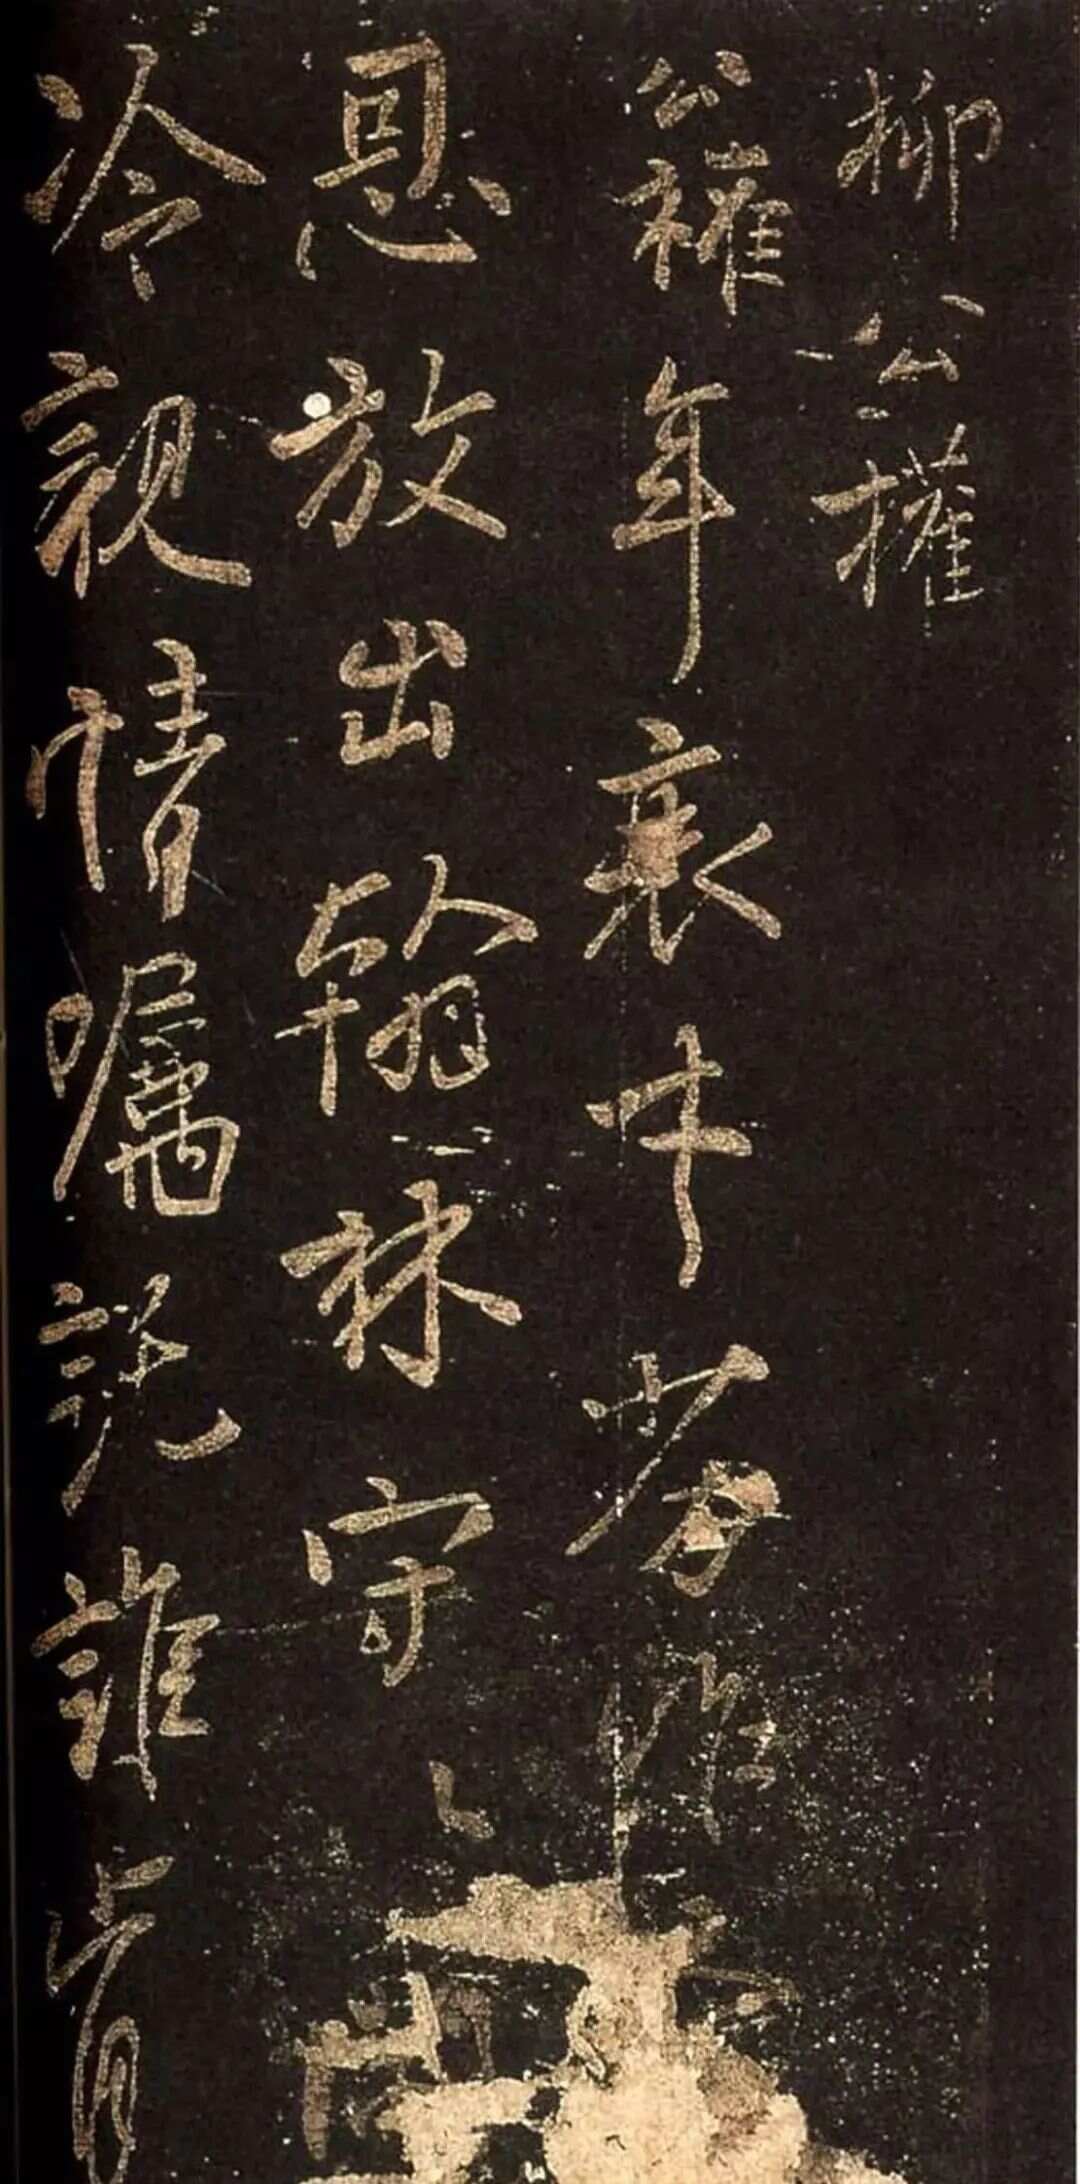 柳公權
公權年衰才劣昨
恩放出翰林守
冷親情嘱説誰肯